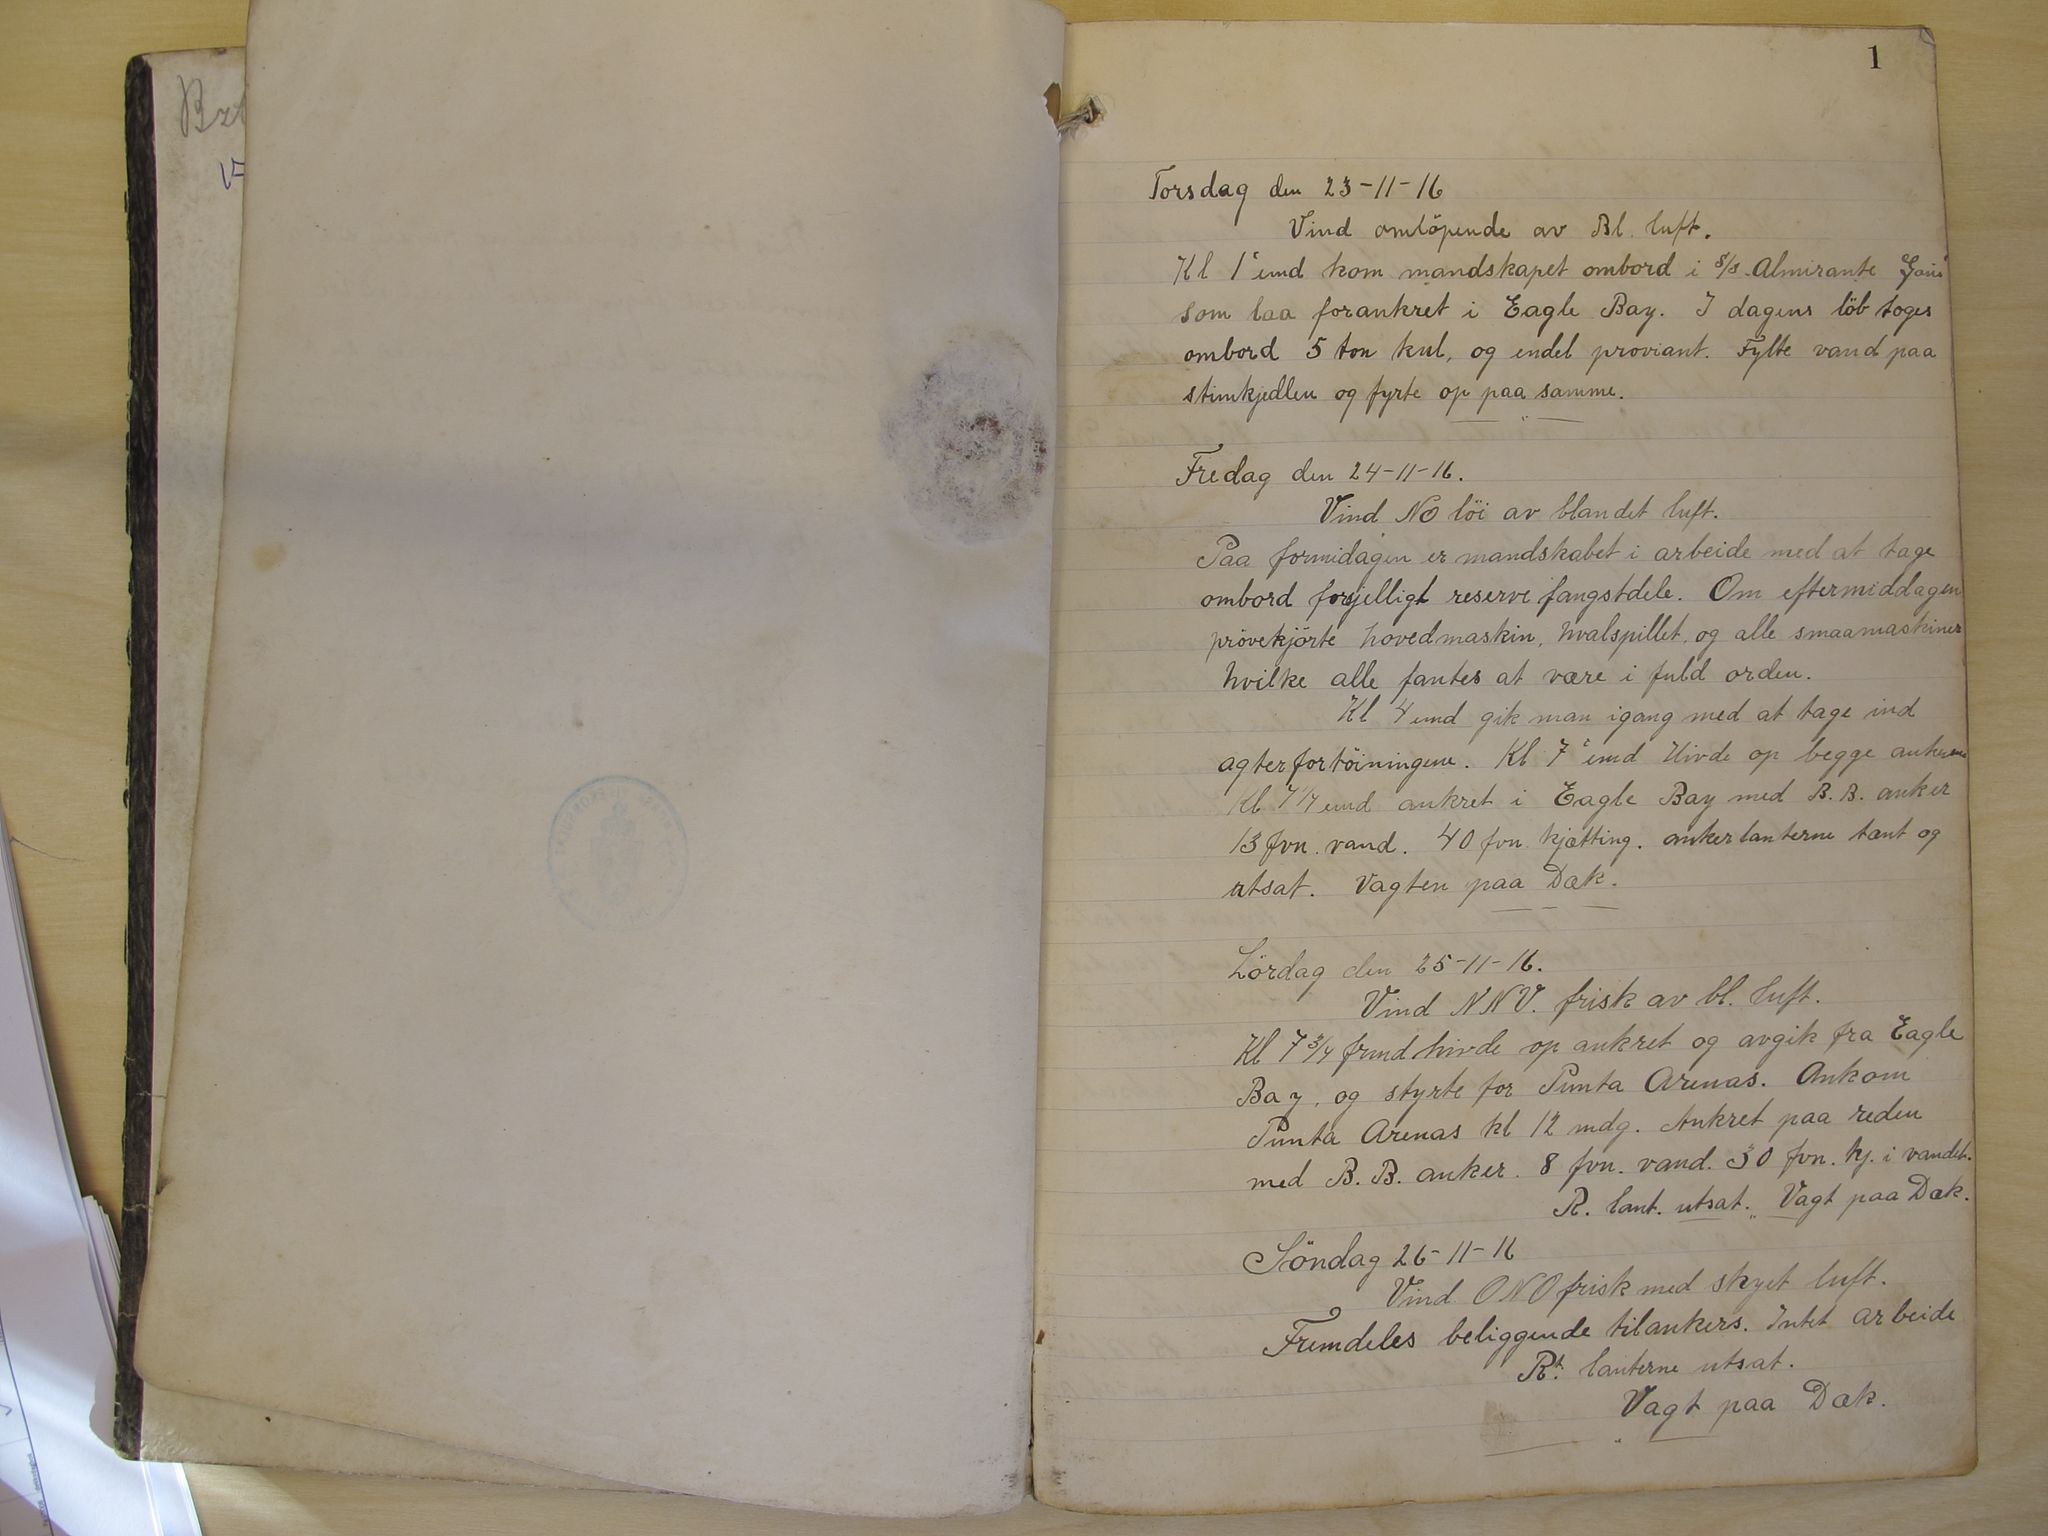 1
Torsdag den 23-11-16
Vind omlöpende av Bl. luft.
Kl 1 emd kom mandskapet ombord i s/s. Almirante
som laa forankret i Eagle Bay. I dagens löb toges
ombord 5 ton kul, og endel proviant. Fylte vand paa
stimkjedlen og fyrte op paa samme.
Fredag den 24-11-16.
Vind NO löi av blandet luft.
Paa formidagen er mandskabet i arbeide med at tage
ombord forsjelligt reserve fangstdele. Om eftermiddagen
prövekjörte hovedmaskin, hvalspillet, og alle smaamaskiner
hvilke alle fantes at være i fuld orden.
Kl 4 emd gik man igang med at tage ind
agterfortöiningene. Kl 7 emd Hivde op begge ankerene
Kl 7 1/4 emd ankret i Eagle Bay med B.B. anker
13 fvn. vand. 40 fvn. kjætting. ankerlanterne tænt og
utsat. Vagten paa Dæk.
Lördag den 25-11-16.
Vind NNV. frisk av bl. luft.
Kl 7 3/4 fmd hivde op ankret og avgik fra Eagle
Bay, og styrte for Punta Arenas. Ankom
Punta Arenas kl 12 mdg. Ankret paa reden
med B. B. anker. 8 fvn. vand. 30 fvn. kj. i vandet.
R. lant. utsat. Vagt paa Dæk.
Söndag 26-11-16
Vind ONO frisk med skyet luft.
Fremdeles beliggende tilankers. Intet arbeide
Rt. lanterne utsat.
Vagt paa Dæk.